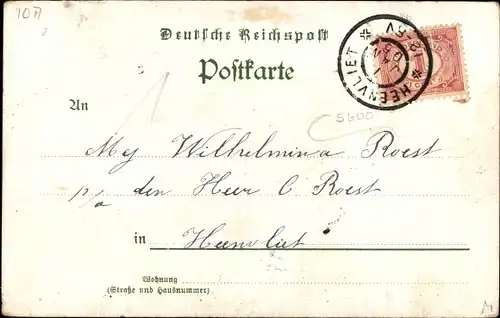 1071
Deutsche Reichspost
Postkarte
HEENVLIET
12-5V
An
5600
Mej Wilhelmina Roest
p/a den Heer C Roest
in Heenvliet
Wohnung
(Straße und Hausnummer)